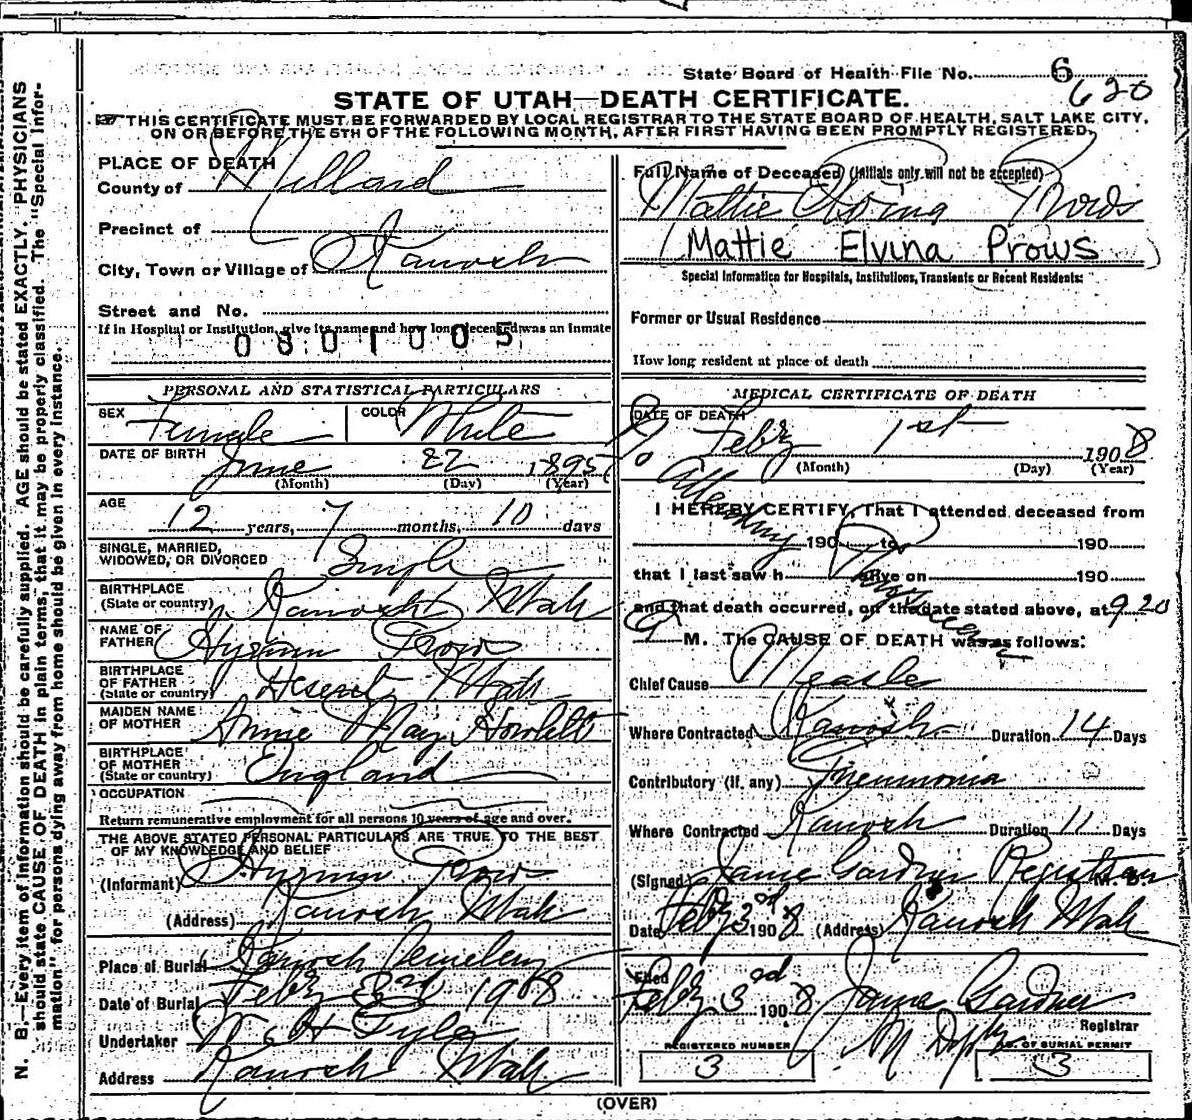 State Board of Health File No. 6
620
STATE OF UTAH—DEATH CERTIFICATE.
THIS CERTIFICATE MUST BE FORWARDED BY LOCAL REGISTRAR TO THE STATE BOARD OF HEALTH, SALT LAKE CITY,
ON OR BEFORE THE 5TH OF THE FOLLOWING MONTH, AFTER FIRST HAVING BEEN PROMPTLY REGISTERED.
N. B.—Every item of information should be carefully supplied. AGE should be stated EXACTLY. PHYSICIANS
should state CAUSE OF DEATH in plain terms, that it may be properly classified. The "Special Infor-
mation" for persons dying away from home should be given in every instance.
PLACE OF DEATH
County of Millard
Precinct of
City, Town or Village of Kanosh
Street and No.
If in Hospital or Institution, give its name and how long deceased was an inmate
0801005
PERSONAL AND STATISTICAL PARTICULARS
SEX Female COLOR White
DATE OF BIRTH June 22 1895
(Month) (Day) (Year)
AGE
12 years, 7 months, 10 days
SINGLE, MARRIED,
WIDOWED, OR DIVORCED Single
BIRTHPLACE
(State or country) Kanosh Utah
NAME OF
FATHER Hyrum Prows
BIRTHPLACE
OF FATHER
(State or country) Deseret Utah
MAIDEN NAME
OF MOTHER Annie May Howlett
BIRTHPLACE
OF MOTHER
(State or country) England
OCCUPATION
Return remunerative employment for all persons 10 years of age and over.
THE ABOVE STATED PERSONAL PARTICULARS ARE TRUE TO THE BEST
OF MY KNOWLEDGE AND BELIEF
(Informant) Hyrum Prows
(Address) Kanosh Utah
Place of Burial Kanosh Cemetery
Date of Burial Feby 1908
Undertaker
Address Kanosh Utah
Full Name of Deceased (Initials only will not be accepted)
Mattie Prows
(Mattie Elvina Prows)
Special Information for Hospitals, Institutions, Transients or Recent Residents:
Former or Usual Residence
How long resident at place of death
MEDICAL CERTIFICATE OF DEATH
DATE OF DEATH
Feby 1st 1908
(Month) (Day) (Year)
No Attending Physician
I HEREBY CERTIFY, That I attended deceased from
190 to 190
that I last saw h alive on 190
and that death occurred, on the date stated above, at 9.20
M. The CAUSE OF DEATH was as follows:
Chief Cause Measle
Where Contracted Kanosh Duration 14 Days
Contributory (if any) Pneumonia
Where Contracted Kanosh Duration 11 Days
(Signed) Gardner Registrar M. D.
Date Feby 3rd 1908 (Address) Kanosh Utah
Filed
Feby 3rd 1908 Gardner
Registrar
REGISTERED NUMBER
3
NO. OF BURIAL PERMIT
3
(OVER)